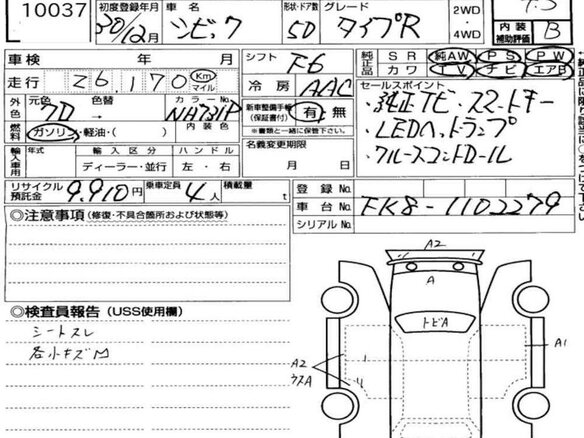 10037
初度登録年月 30/12月
車名 シビック
形状・ドア数 5D
グレード タイプR
2WD・4WD
4.5
内装補助評価 B
車検 年 月
シフト F6
純正品 SR 純AW PS PW
カワ TV ナビ エアB
走行 26,170 Km マイル
冷房 AAC
セールスポイント
・純正ナビ・スマートキー
・LEDヘッドランプ
・クルーズコントロール
外色 元色 クロ 色替 カラーNo. NH731P
内装色
燃料 ガソリン・軽油・( )
新車整備手帳(保証書付) 有・無
※書類と一緒に保管下さい。
輸入車用 年式 輸入区分 ハンドル
ディーラー・並行 左・右
名義変更期限
月 日
リサイクル預託金 9,910円
乗車定員 4人
積載量 t
登録No.
車台No. FK8-1102279
シリアルNo.
◎注意事項(修復・不具合箇所および状態等)
◎検査員報告(USS使用欄)
シートスレ
各小キズ凹
A2
A
トビA
A1
A2
ウスA